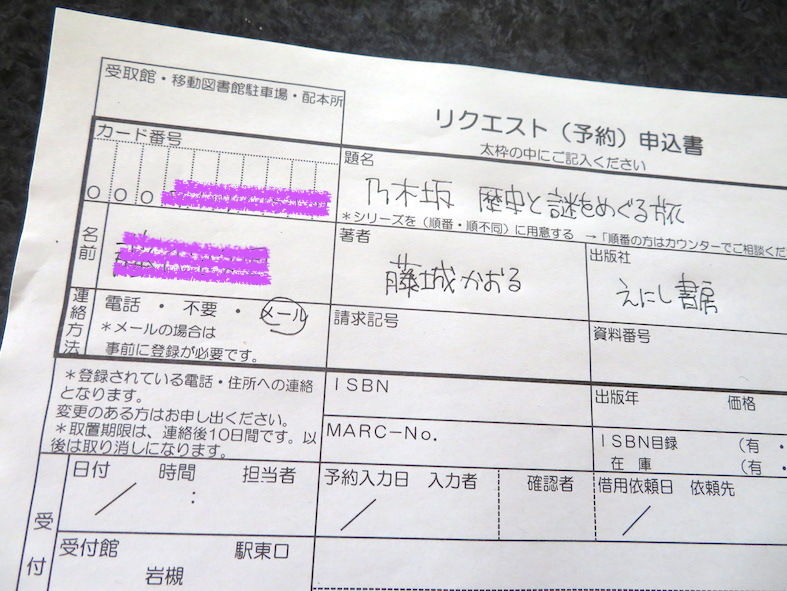 受取館・移動図書館駐車場・配本所
リクエスト（予約）申込書
太枠の中にご記入ください
カード番号
000
題名
乃木坂 歴史と謎をめぐる旅
＊シリーズを（順番・順不同）に用意する →「順番の方はカウンターでご相談くだ
名前
著者
藤城かおる
出版社
えにし書房
連絡方法
電話 ・ 不要 ・ メール
＊メールの場合は
事前に登録が必要です。
請求記号
資料番号
＊登録されている電話・住所への連絡
となります。
変更のある方はお申し出ください。
＊取置期限は、連絡後10日間です。以
後は取り消しになります。
ISBN
出版年 価格
MARC-No.
ISBN目録 （有・
在 庫 （有・
受付
日付 時間 担当者
／ ：
予約入力日 入力者 確認者
／
借用依頼日 依頼先
／
受付館 駅東口
岩槻